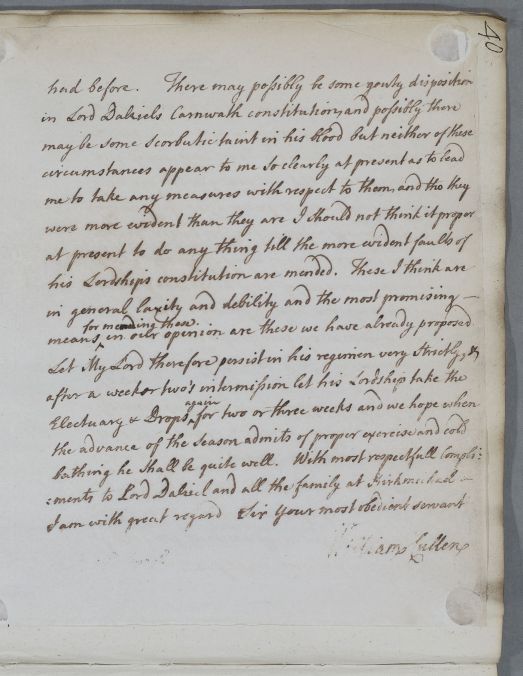 40
had before. There may possibly be some gouty disposition
in Lord Dalziels Carnwath constitution, and possibly there
may be some Scorbutic taint in his blood but neither of these
circumstances appear to me so clearly at present as to lead
me to take any measures with respect to them, and tho they
were more evident than they are I should not think it proper
at present to do any thing till the more evident faults of
his Lordships constitution are mended. These I think are
in general laxity and debility and the most promising —
for mending these
means, in our opinion are these we have already proposed
Let My Lord therefore persist in his regimen very strictly, &
after a week or two's intermission let his Lordship take the
again
Electuary & Drops, for two or three weeks and we hope when
the advance of the season admits of proper exercise and cold
bathing he shall be quite well. With most respectfull Compli:
:ments to Lord Dalziel and all the family at Kirkmichael —
I am with great regard Sir Your most obedient servant
William Cullen